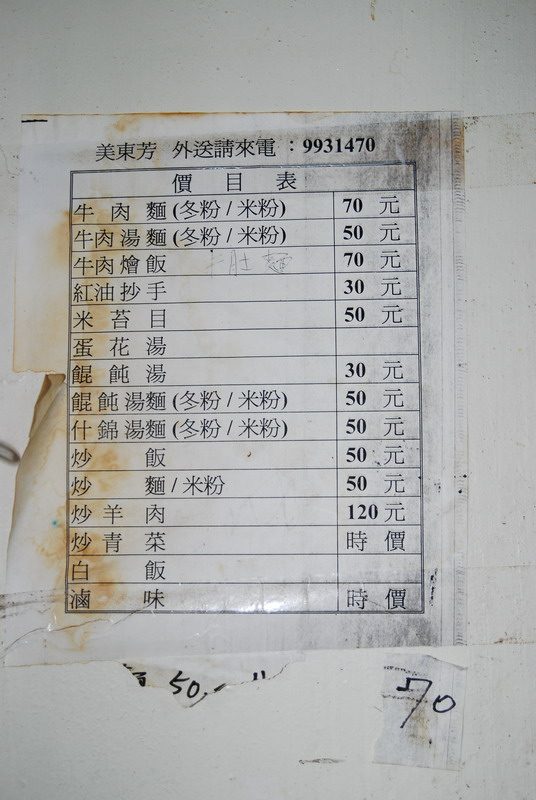 美東芳 外送請來電：9931470
價目表
牛肉麵(冬粉/米粉) 70 元
牛肉湯麵(冬粉/米粉) 50 元
牛肉燴飯 70 元
紅油抄手 30 元
米苔目 50 元
蛋花湯
餛飩湯 30 元
餛飩湯麵(冬粉/米粉) 50 元
什錦湯麵(冬粉/米粉) 50 元
炒飯 50 元
炒麵/米粉 50 元
炒羊肉 120元
炒青菜 時價
白飯
滷味 時價
50
70